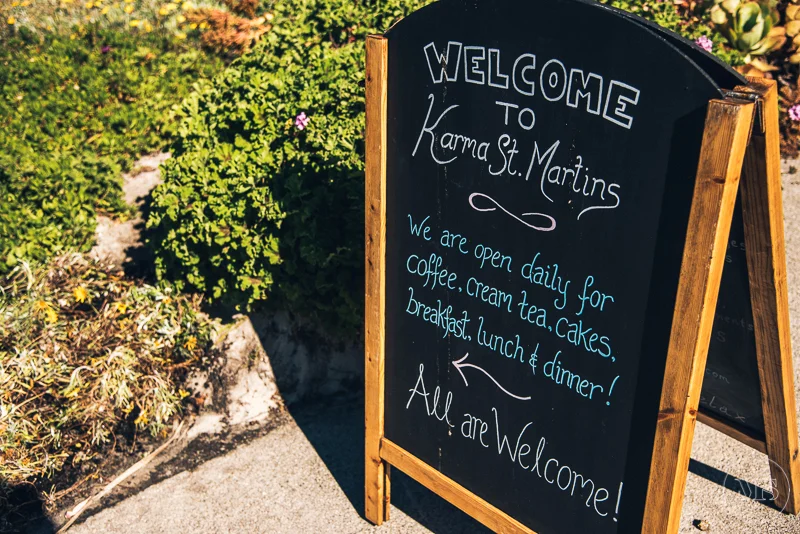 WELCOME
TO
Karma St. Martins
We are open daily for
coffee, cream tea, cakes,
breakfast, lunch & dinner!
All are Welcome!